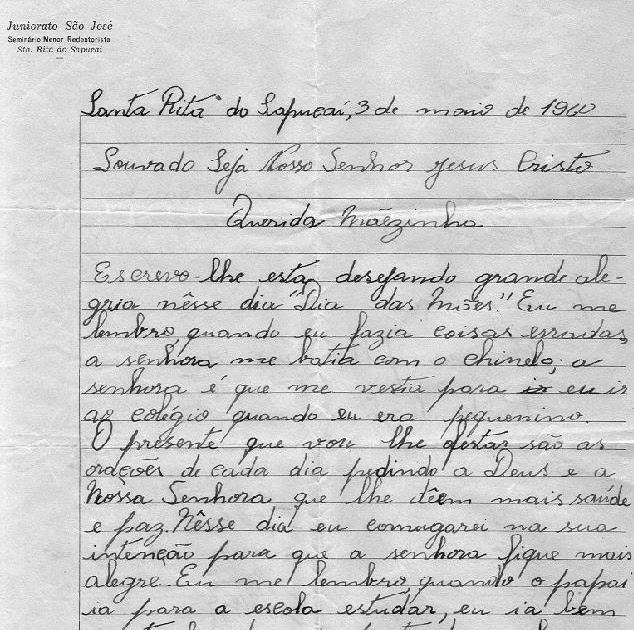 Juniorato São José
Seminário Menor Redentorista
Sta. Rita do Sapucaí
Santa Rita do Sapucaí, 3 de maio de 1960
Louvado Seja Nosso Senhor Jesus Cristo
Querida Mãezinha
Escrevo-lhe esta desejando grande ale-
gria nêsse dia "Dia das Mães". Eu me
lembro, quando eu fazia coisas erradas,
a senhora me batia com o chinelo; a
senhora é que me vestia para eu ir
ao colégio quando eu era pequenino.
O presente que vou lhe são as
orações de cada dia pedindo a Deus e a
Nossa Senhora que lhe dêem mais saúde
e paz. Nêsse dia eu comugarei na sua
intenção para que a senhora fique mais
alegre. Eu me lembro quando o papai
ia para a escola estudar, eu ia bem